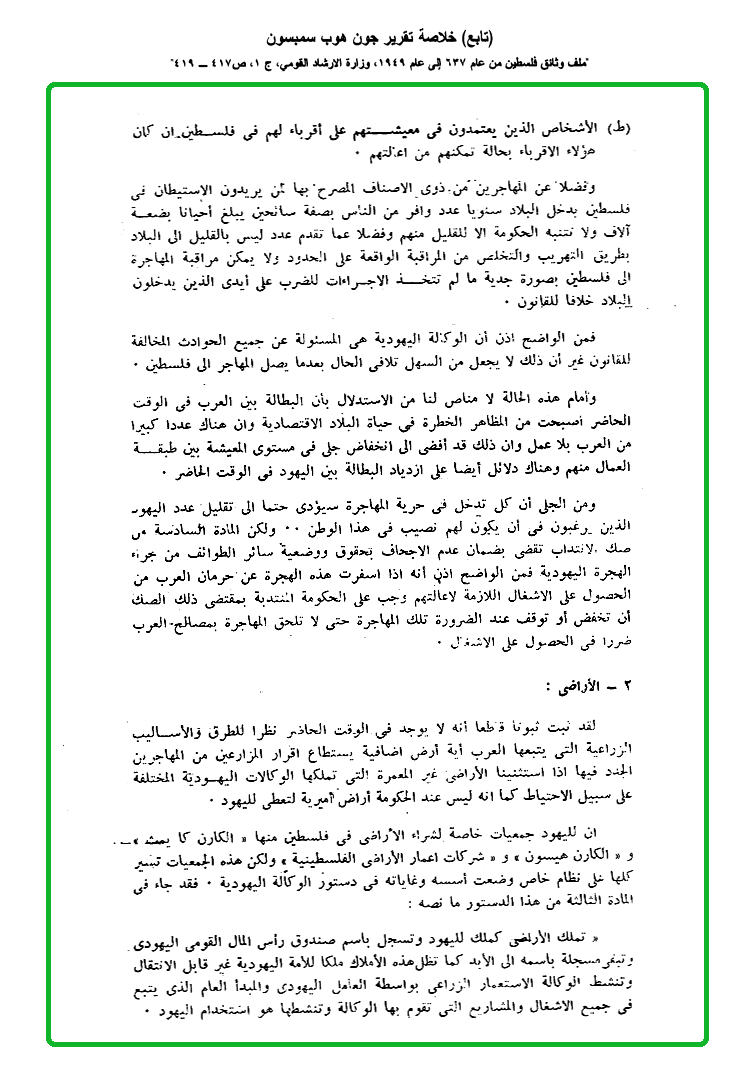 (تابع) خلاصة تقرير جون هوب سمبسون
"ملف وثائق فلسطين من عام ٦٣٧ إلى عام ١٩٤٩، وزارة الارشاد القومي، ج ١، ص ٤١٧ – ٤١٩"
(ط) الأشخاص الذين يعتمدون فى معيشتهم على أقرباء لهم فى فلسطين ان كان
هؤلاء الاقرباء بحالة تمكنهم من اعالتهم ٠
وفضلا عن المهاجرين من ذوى الاصناف المصرح بها لمن يريدون الإستيطان فى
فلسطين يدخل البلاد سنويا عدد وافر من الناس بصفة سائحين يبلغ أحيانا بضعة
آلاف ولا تنتبه الحكومة الا للقليل منهم وفضلا عما تقدم عدد ليس بالقليل الى البلاد
بطريق التهريب والتخلص من المراقبة الواقعة على الحدود ولا يمكن مراقبة المهاجرة
الى فلسطين بصورة جدية ما لم تتخذ الاجراءات للضرب على أيدى الذين يدخلون
البلاد خلافا للقانون ٠
فمن الواضح اذن أن الوكالة اليهودية هى المسئولة عن جميع الحوادث المخالفة
للقانون غير أن ذلك لا يجعل من السهل تلافى الحال بعدما يصل المهاجر الى فلسطين ٠
وأمام هذه الحالة لا مناص لنا من الاستدلال بأن البطالة بين العرب فى الوقت
الحاضر أصبحت من المظاهر الخطرة فى حياة البلاد الاقتصادية وان هناك عددا كبيرا
من العرب بلا عمل وان ذلك قد أفضى الى انخفاض جلى فى مستوى المعيشة بين طبقة
العمال منهم وهناك دلائل أيضا على ازدياد البطالة بين اليهود فى الوقت الحاضر ٠
ومن الجلى أن كل تدخل فى حرية المهاجرة سيؤدى حتما الى تقليل عدد اليهود
الذين يرغبون فى أن يكون لهم نصيب فى هذا الوطن ٠٠ ولكن المادة السادسة من
صك الانتداب تقضى بضمان عدم الاجحاف بحقوق ووضعية سائر الطوائف من جراء
الهجرة اليهودية فمن الواضح اذن أنه اذا اسفرت هذه الهجرة عن حرمان العرب من
الحصول على الاشغال اللازمة لاعالتهم وجب على الحكومة المنتدبة بمقتضى ذلك الصك
أن تخفض أو توقف عند الضرورة تلك المهاجرة حتى لا تلحق المهاجرة بمصالح العرب
ضررا فى الحصول على الاشغال ٠
٢ – الأراضى :
لقد ثبت ثبوتا قطعا أنه لا يوجد فى الوقت الحاضر نظرا للطرق والأساليب
الزراعية التى يتبعها العرب أية أرض اضافية يستطاع اقرار المزارعين من المهاجرين
الجدد فيها اذا استثنينا الأراضى غير المعمرة التى تملكها الوكالات اليهودية المختلفة
على سبيل الاحتياط كما انه ليس عند الحكومة أراض أميرية لتعطى لليهود ٠
ان لليهود جمعيات خاصة لشراء الأراضى فى فلسطين منها « الكارن كا يمث »
و « الكارن هيسون » و « شركات اعمار الأراضى الفلسطينية » ولكن هذه الجمعيات تسير
كلها على نظام خاص وضعت أسسه وغاياته فى دستور الوكالة اليهودية ٠ فقد جاء فى
المادة الثالثة من هذا الدستور ما نصه :
« تملك الأراضى كملك لليهود وتسجل باسم صندوق رأس المال القومى اليهودى
وتبقى مسجلة باسمه الى الأبد كما تظل هذه الأملاك ملكا للأمة اليهودية غير قابل الانتقال
وتنشط الوكالة الاستعمار الزراعى بواسطة العامل اليهودى والمبدأ العام الذى يتبع
فى جميع الاشغال والمشاريع التى تقوم بها الوكالة وتنشطها هو استخدام اليهود ٠